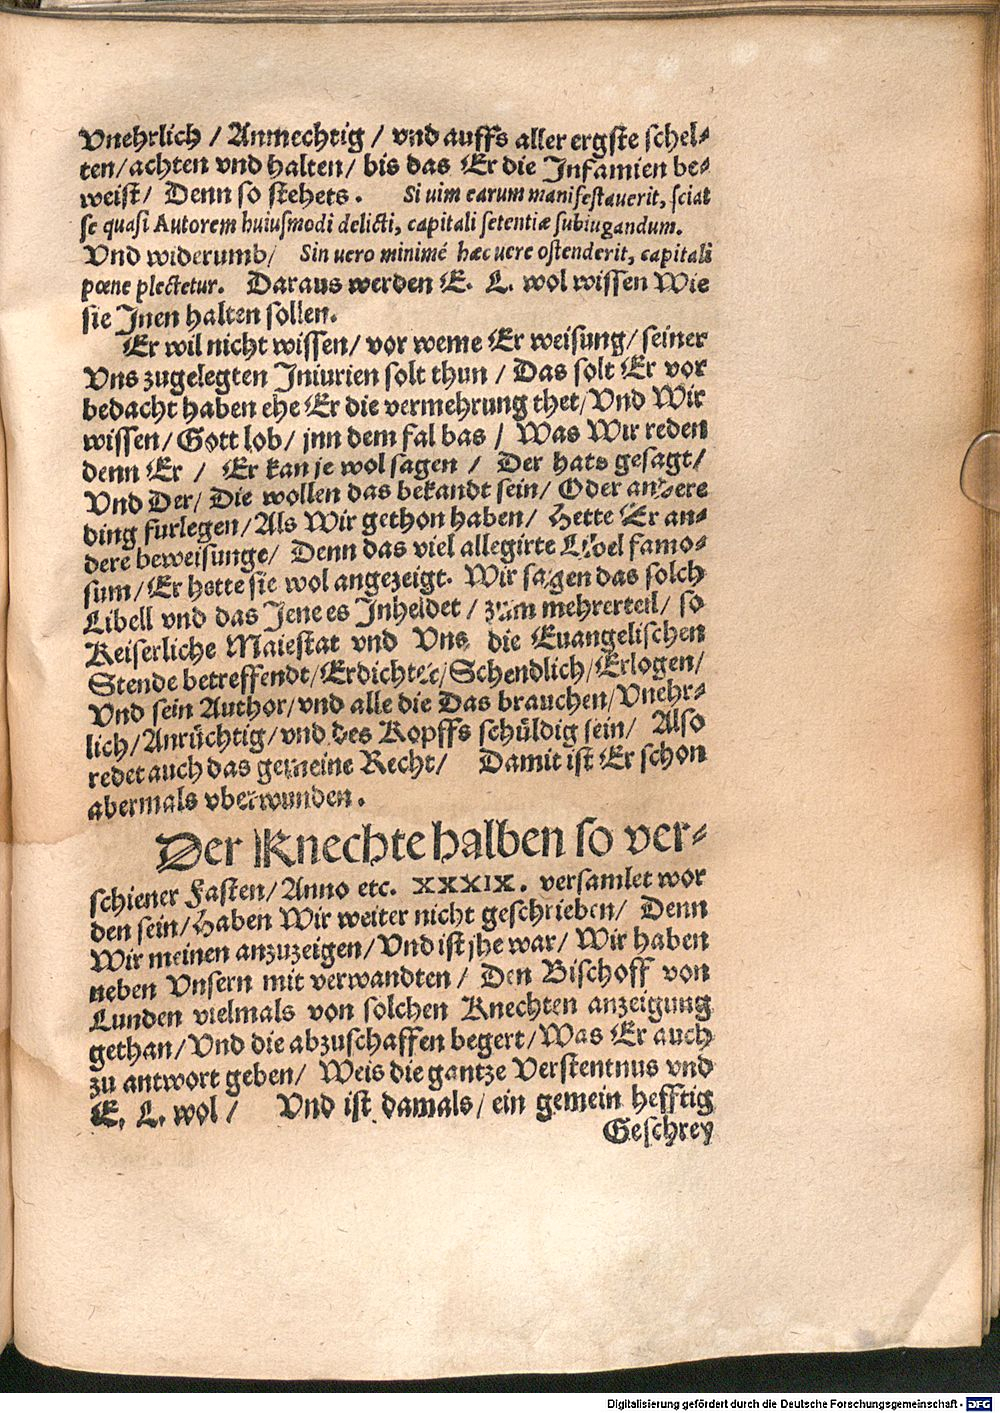 Vnehrlich / Anmechtig / vnd auffs aller ergste schel⸗
ten/ achten vnd halten/ bis das Er die Infamien be⸗
weist/ Denn so stehets . Si uim earum manifestauerit, sciat
se quasi Autorem huiusmodi delicti, capitali setentiæ subiugandum.
Vnd widerumb/ Sin uero minimé hæc uere ostenderit, capitali
pœne plectetur. Daraus werden E. L. wol wissen Wie
sie Jnen halten sollen.
Er wil nicht wissen/ vor weme Er weisung/ seiner
Vns zugelegten Iniurien solt thun / Das solt Er vor
bedacht haben ehe Er die vermehrung thet/ Vnd Wir
wissen/ Gott lob/ jnn dem fal bas / Was Wir reden
denn Er / Er kan je wol sagen / Der hats gesagt/
Vnd Der/ Die wollen das bekandt sein/ Oder andere
ding furlegen/ Als Wir gethon haben/ Hette Er an⸗
dere beweisunge/ Denn das viel allegirte Libel famo⸗
sum/ Er hette sie wol angezeigt. Wir sagen das solch
Libell vnd das Jene es Inheldet / zum mehrerteil/ so
Keiserliche Maiestat vnd Vns die Euangelischen
Stende betreffendt/ Erdichtet/ Schendlich/ Erlogen/
Vnd sein Author/ vnd alle die Das brauchen/ Vnehr⸗
lich/ Anrüchtig/ vnd des Kopffs schüldig sein/ Also
redet auch das gemeine Recht/ Damit ist Er schon
abermals vberwunden .
Der Knechte halben so ver⸗
schiener Fasten/ Anno etc. XXXIX. versamlet wor
den sein/ Haben Wir weiter nicht geschrieben/ Denn
Wir meinen anzuzeigen/ Vnd ist jhe war/ Wir haben
neben Vnsern mit verwandten / Den Bischoff von
Lunden vielmals von solchen Knechten anzeigung
gethan/ Vnd die abzuschaffen begert/ Was Er auch
zu antwort geben/ Weis die gantze Verstentnus vnd
E. L. wol / Vnd ist damals/ ein gemein hefftig
Geschrey
Digitalisierung gefördert durch die Deutsche Forschungsgemeinschaft - DFG